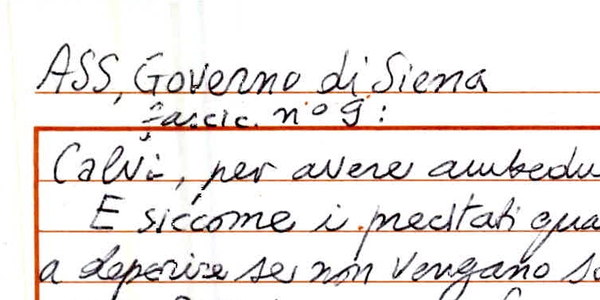 ASS, Governo di Siena
fascic. nº 9:
Calvi, per avere ambedu
E siccome i precitati qua
a deperire se non vengano so